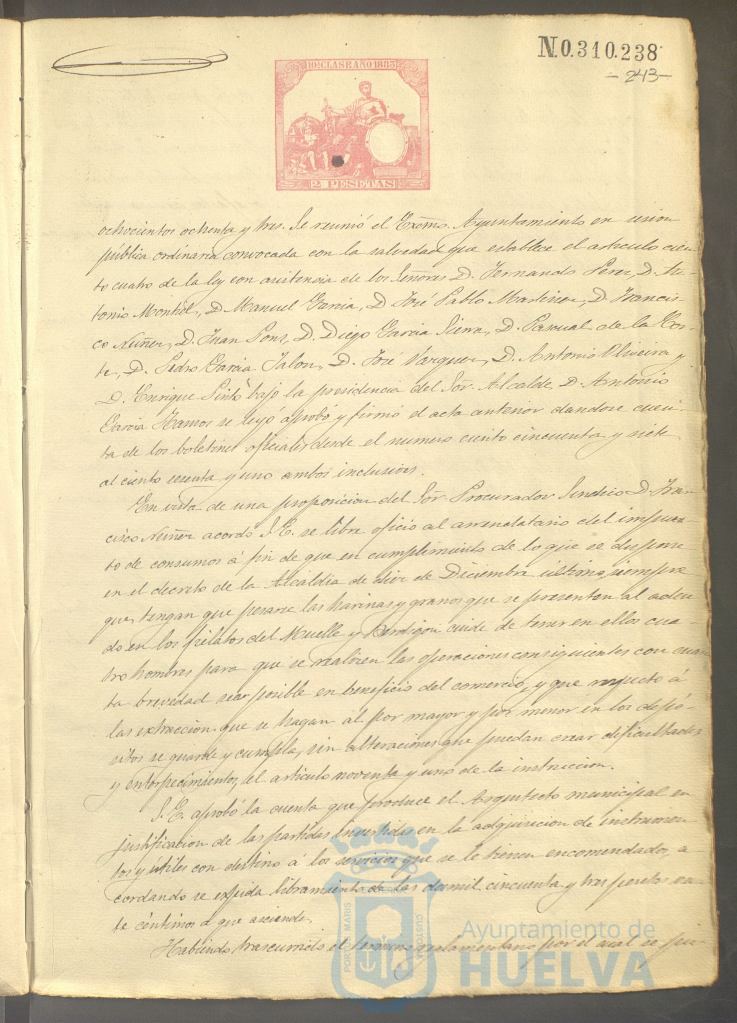 N.0.310.238
-243-
10ª CLASE AÑO 1883
2 PESETAS
ochocientos ochenta y tres. Se reunió el Excmo. Ayuntamiento en sesion
pública ordinaria convocada con la salvedad que establece el articulo cien-
to cuatro de la ley con asistencia de los Señores D. Fernando Perez, D. An-
tonio Montiel, D. Manuel Garcia, D. José Pablo Martinez, D. Francis-
co Nuñez, D. Juan Pons, D. Diego Garcia Sierra, D. Pascual de la Cor-
te, D. Pedro Garcia Jalon, D. José Vazquez, D. Antonio Oliveira y
D. Enrique Pinto bajo la presidencia del Sor. Alcalde D. Antonio
Garcia Ramos se leyó aprobó y firmó el acta anterior dandose cuen-
ta de los boletines oficiales desde el numero ciento cincuenta y siete
al ciento sesenta y uno ambos inclusives.
En vista de una proposicion del Sor. Procurador Sindico D. Fran-
cisco Nuñez acordó S.E. se libre oficio al arrendatario del impues-
to de consumos á fin de que en cumplimiento de lo que se dispone
en el decreto de la Alcaldia de diez de Diciembre último, siempre
que tengan que pesarse las harinas y granos que se presenten al adeu-
do en los fielatos del Muelle y Perdigon cuide de tener en ellos cua-
tro hombres para que se realicen las operaciones consiguientes con cuan-
ta brevedad sea posible en beneficio del comercio, y que respecto á
las extraccion que se hagan al por mayor y por menor en los depó-
sitos se guarde y cumpla, sin alteraciones que puedan crear dificultades
y entorpecimientos, el articulo noventa y uno de la instruccion.
S.E. aprobó la cuenta que produce el Arquitecto municipal en
justificacion de las partidas invertidas en la adquisicion de instrumen-
tos y utiles con destino á los servicios que se le tienen encomendados, a-
cordando se expida libramiento de las dos mil cincuenta y tres pesetas
te céntimos á que asciende.
Habiendo trascurrido el termino reglamentario por el cual se
PORTUS MARIS
CUSTODIA
Ayuntamiento de
HUELVA